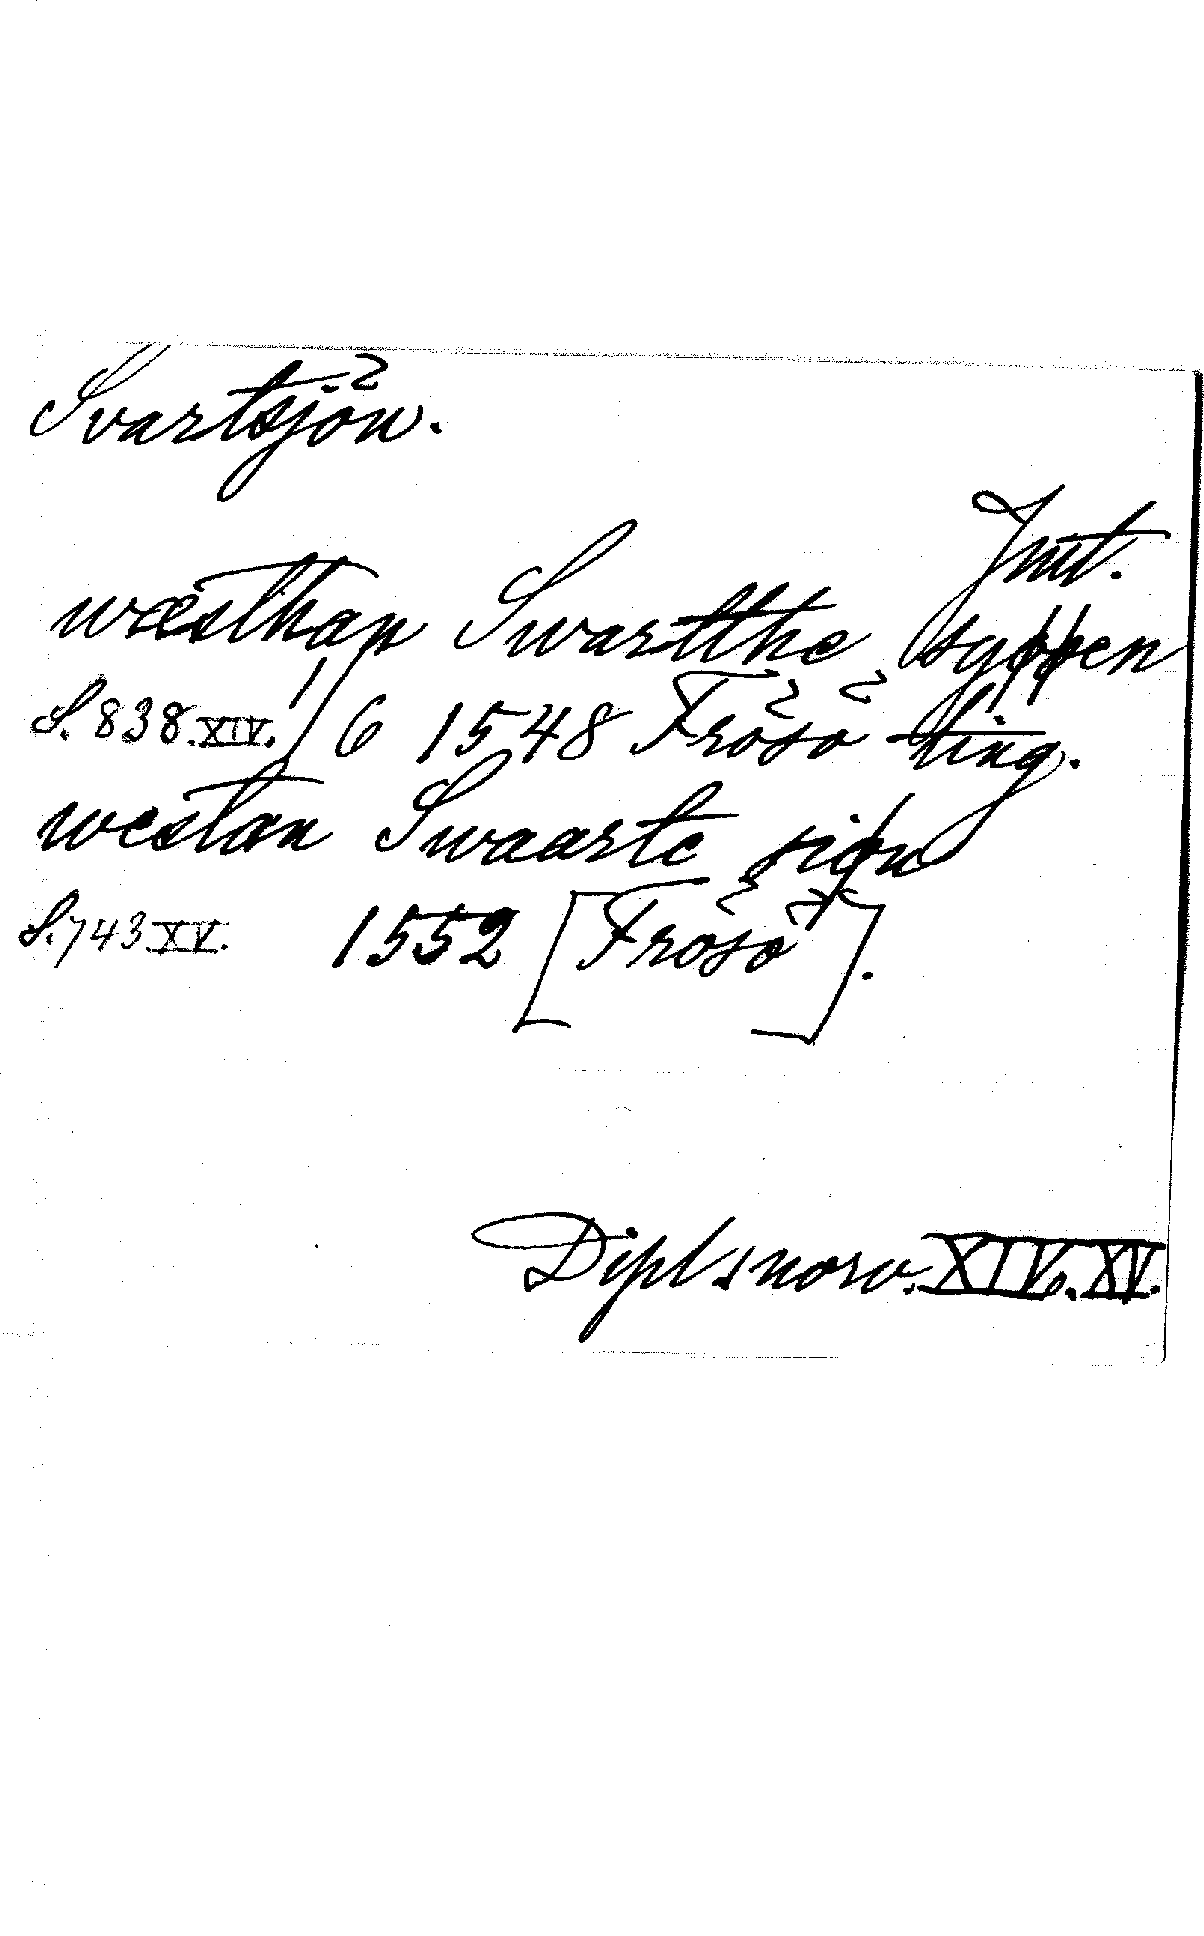 Svartsjön.
Jmt.
wæsthan Swartthe syøøen
S. 838. XIV. 1/6 1548 Frösö ting.
westan Swaarte siøn
S. 743 XV. 1552 [Frösö].
Dipl. norv. XIV. XV.